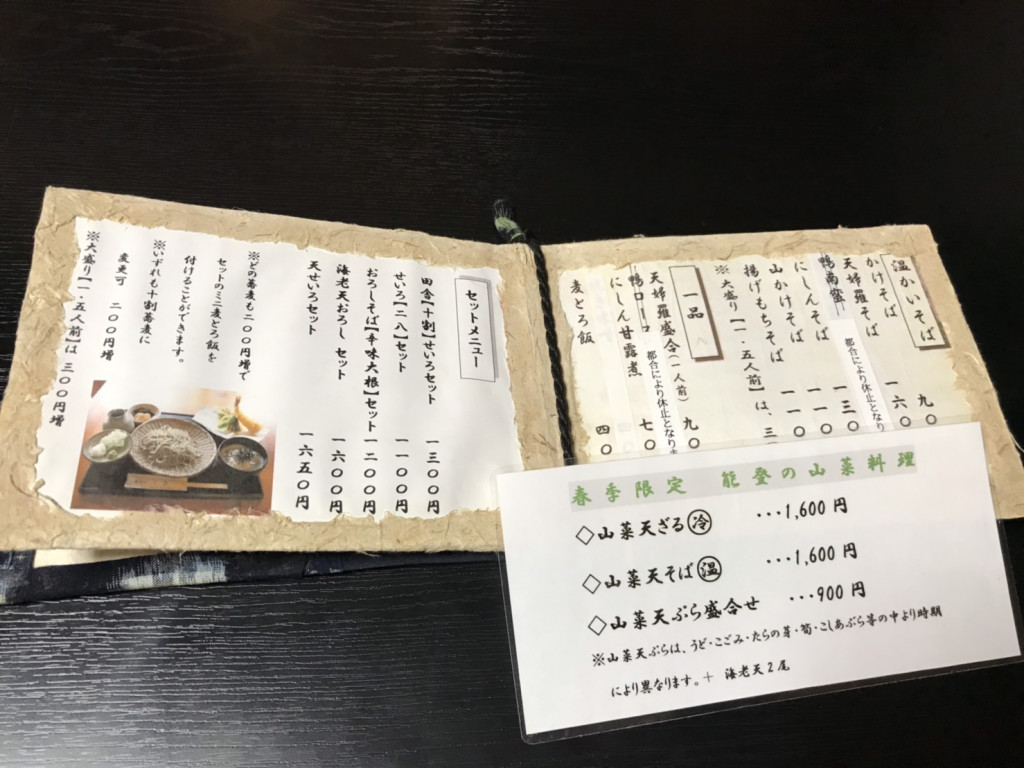 温かいそば
かけそば 九〇
天婦羅そば 一六〇
鴨南蛮 一三〇
都合により休止となり
にしんそば 一一〇
山かけそば 一一〇
揚げもちそば
※大盛り【一・五人前】は、三
一品
天婦羅盛合(一人前) 九〇
都合により休止となりま
鴨ロース 七〇
にしん甘露煮
麦とろ飯 四〇
セットメニュー
田舎【十割】せいろセット 一三〇〇円
せいろ【二八】セット 一一〇〇円
おろしそば【辛味大根】セット 一二〇〇円
海老天おろし セット 一六〇〇円
天せいろセット 一六五〇円
※どの蕎麦も二〇〇円増で
セットのミニ麦とろ飯を
付けることができます。
※いずれも十割蕎麦に
変更可 二〇〇円増
※大盛り【一・五人前】は 三〇〇円増
春季限定 能登の山菜料理
◇山菜天ざる㊀冷 ・・・1,600 円
◇山菜天そば 温 ・・・1,600 円
◇山菜天ぷら盛合せ ・・・900 円
※山菜天ぷらは、うど・こごみ・たらの芽・筍・こしあぶら等の中より時期
により異なります。＋ 海老天2尾